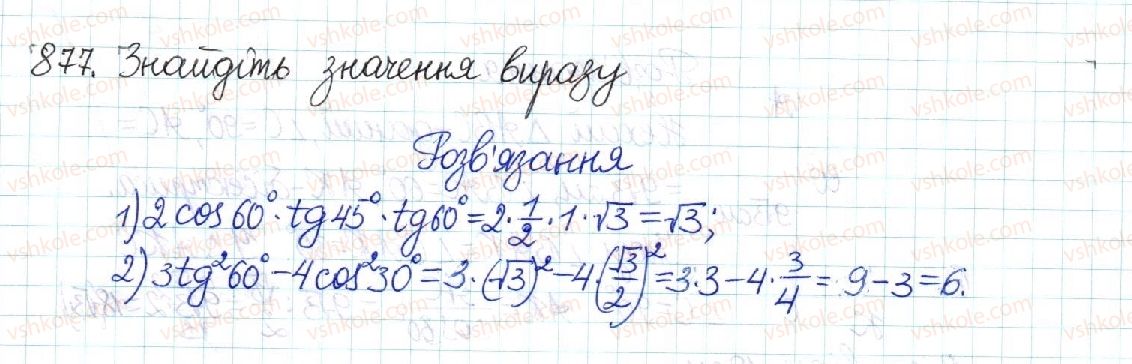 877. Знайдіть значення виразу
Розв'язання
1) 2 cos 60° · tg 45° · tg 60° = 2 · 1/2 · 1 · √3 = √3;
2) 3tg²60° - 4cos²30° = 3 · (√3)² - 4 · (√3/2)² = 3·3 - 4 · 3/4 = 9 - 3 = 6.